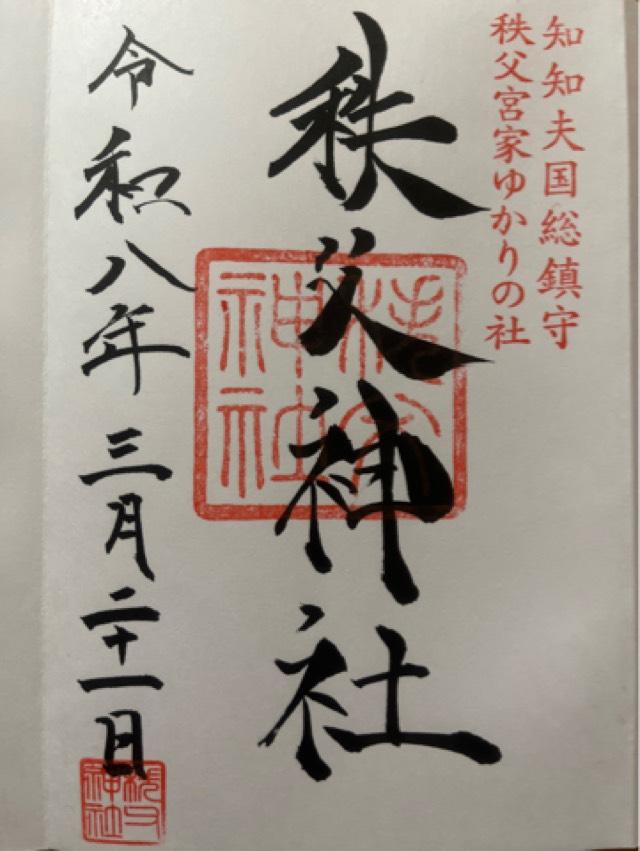 知知夫国総鎮守
秩父宮家ゆかりの社
秩父神社
秩父神社
令和八年三月二十一日
秩父神社